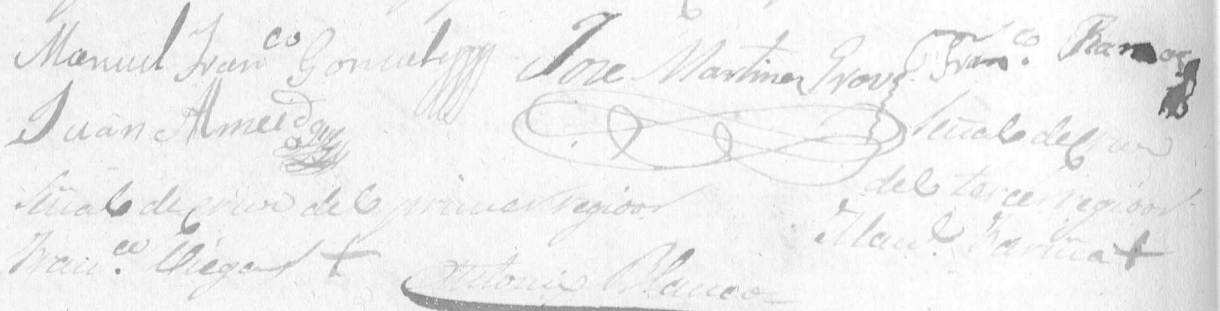 Manuel Fran.co Gonzalez Jose Martinez Grove Fran.co Ramos
Juan Ameido
Señal de cruz
Señal de cruz del primer regidor
del tercer regidor
Fran.co Chiegas +
Man.l Fariña +
Antonio Blanco